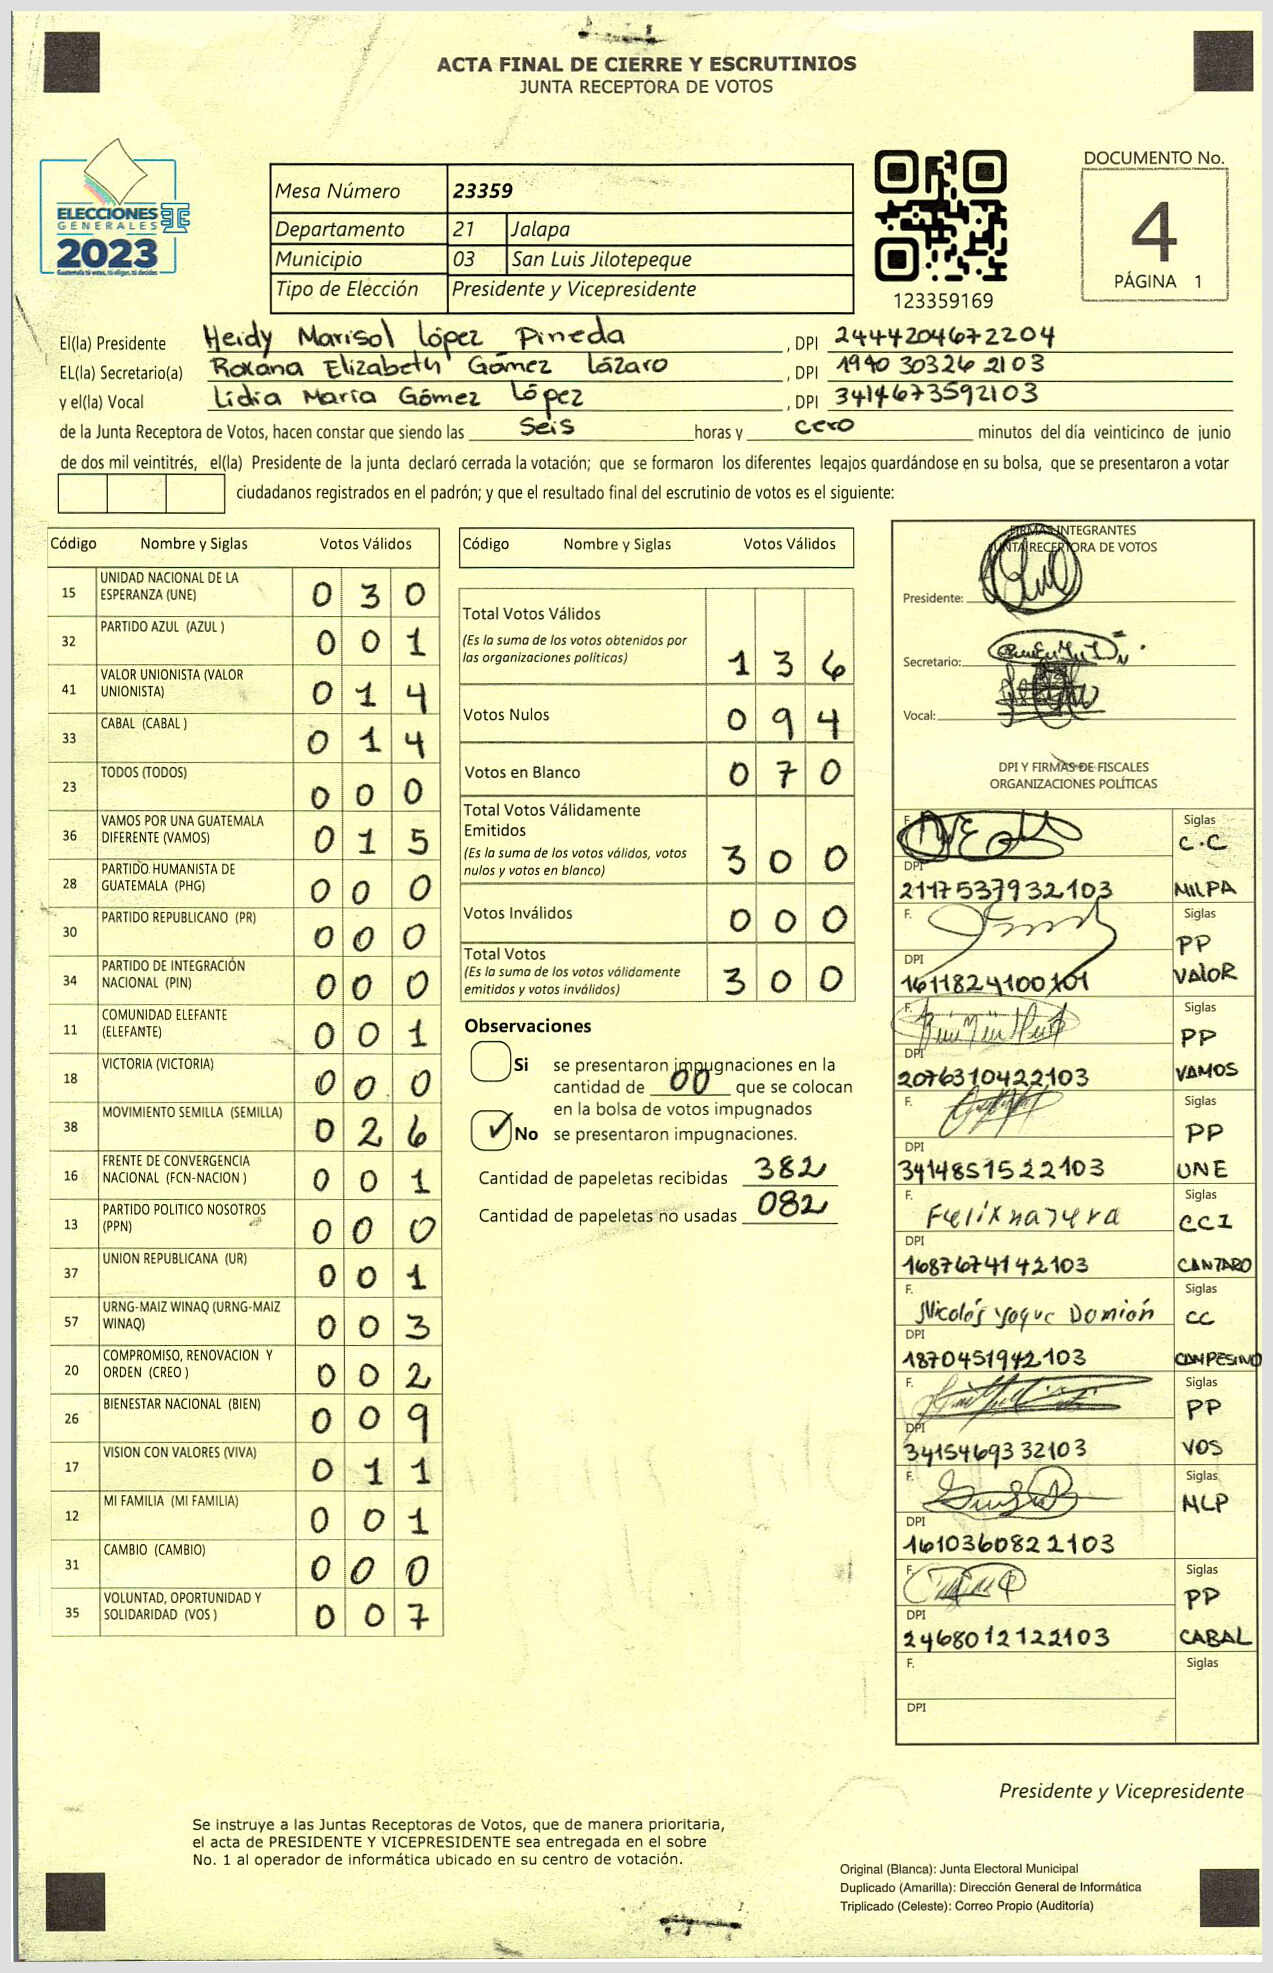 ACTA FINAL DE CIERRE Y ESCRUTINIOS
JUNTA RECEPTORA DE VOTOS
ELECCIONES
GENERALES
2023
Guatemala tú votas, tú eliges, tú decides
Mesa Número 23359
Departamento 21 Jalapa
Municipio 03 San Luis Jilotepeque
Tipo de Elección Presidente y Vicepresidente
123359169
DOCUMENTO No.
4
PÁGINA 1
El(la) Presidente Heidy Marisol López Pineda , DPI 2444204672204
EL(la) Secretario(a) Roxana Elizabeth Gómez Lázaro , DPI 1990 30326 2103
y el(la) Vocal Lidia María Gómez López , DPI 3414673592103
de la Junta Receptora de Votos, hacen constar que siendo las seis horas y cero minutos del día veinticinco de junio
de dos mil veintitrés, el(la) Presidente de la junta declaró cerrada la votación; que se formaron los diferentes legajos guardándose en su bolsa, que se presentaron a votar
ciudadanos registrados en el padrón; y que el resultado final del escrutinio de votos es el siguiente:
Código Nombre y Siglas Votos Válidos
15 UNIDAD NACIONAL DE LA ESPERANZA (UNE) 0 3 0
32 PARTIDO AZUL (AZUL ) 0 0 1
41 VALOR UNIONISTA (VALOR UNIONISTA) 0 1 4
33 CABAL (CABAL ) 0 1 4
23 TODOS (TODOS) 0 0 0
36 VAMOS POR UNA GUATEMALA DIFERENTE (VAMOS) 0 1 5
28 PARTIDO HUMANISTA DE GUATEMALA (PHG) 0 0 0
30 PARTIDO REPUBLICANO (PR) 0 0 0
34 PARTIDO DE INTEGRACIÓN NACIONAL (PIN) 0 0 0
11 COMUNIDAD ELEFANTE (ELEFANTE) 0 0 1
18 VICTORIA (VICTORIA) 0 0 0
38 MOVIMIENTO SEMILLA (SEMILLA) 0 2 6
16 FRENTE DE CONVERGENCIA NACIONAL (FCN-NACION ) 0 0 1
13 PARTIDO POLITICO NOSOTROS (PPN) 0 0 0
37 UNION REPUBLICANA (UR) 0 0 1
57 URNG-MAIZ WINAQ (URNG-MAIZ WINAQ) 0 0 3
20 COMPROMISO, RENOVACION Y ORDEN (CREO ) 0 0 2
26 BIENESTAR NACIONAL (BIEN) 0 0 9
17 VISION CON VALORES (VIVA) 0 1 1
12 MI FAMILIA (MI FAMILIA) 0 0 1
31 CAMBIO (CAMBIO) 0 0 0
35 VOLUNTAD, OPORTUNIDAD Y SOLIDARIDAD (VOS ) 0 0 7
Código Nombre y Siglas Votos Válidos
Total Votos Válidos
(Es la suma de los votos obtenidos por
las organizaciones políticas) 1 3 6
Votos Nulos 0 9 4
Votos en Blanco 0 7 0
Total Votos Válidamente
Emitidos
(Es la suma de los votos válidos, votos
nulos y votos en blanco) 3 0 0
Votos Inválidos 0 0 0
Total Votos
(Es la suma de los votos válidamente
emitidos y votos inválidos) 3 0 0
Observaciones
Si se presentaron impugnaciones en la
cantidad de 00 que se colocan
en la bolsa de votos impugnados
✓ No se presentaron impugnaciones.
Cantidad de papeletas recibidas 382
Cantidad de papeletas no usadas 082
FIRMAS INTEGRANTES
JUNTA RECEPTORA DE VOTOS
Presidente:
Secretario:
Vocal:
DPI Y FIRMAS DE FISCALES
ORGANIZACIONES POLÍTICAS
F. Siglas
C.C
DPI
2117537932103 MILPA
F. Siglas
PP
DPI
1611824100101 VALOR
F. Siglas
PP
DPI
2076310422103 VAMOS
F. Siglas
PP
DPI
3414851522103 UNE
F. Felix najera Siglas
CCI
DPI
1687674142103 CANTARO
F. Nicolás Yoque Domión Siglas
CC
DPI
1870451942103 CAMPESINO
F. Siglas
PP
DPI
3415469332103 VOS
F. Siglas
MLP
DPI
1610360822103
F. Siglas
PP
DPI
2468012122103 CABAL
F. Siglas
DPI
Presidente y Vicepresidente
Se instruye a las Juntas Receptoras de Votos, que de manera prioritaria,
el acta de PRESIDENTE Y VICEPRESIDENTE sea entregada en el sobre
No. 1 al operador de informática ubicado en su centro de votación.
Original (Blanca): Junta Electoral Municipal
Duplicado (Amarilla): Dirección General de Informática
Triplicado (Celeste): Correo Propio (Auditoría)